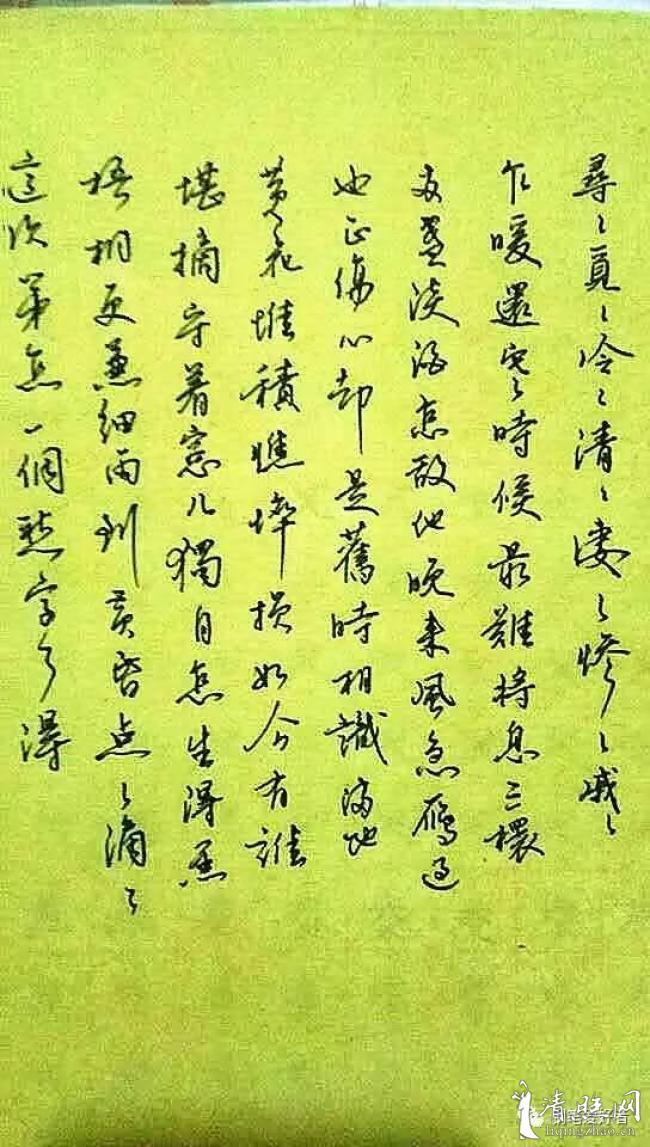 尋〻覓〻冷〻清〻凄〻惨〻戚〻
乍暖還寒時候最難將息三
兩盞淡酒怎敵他晚来風急雁過
也正傷心却是舊時相識滿地
黄花堆積憔悴損如今有誰
堪摘守着窓儿獨自怎生得黑
梧桐更兼細雨到黄昏点〻滴〻
這次第怎一個愁字了得
liqingzhao.cn